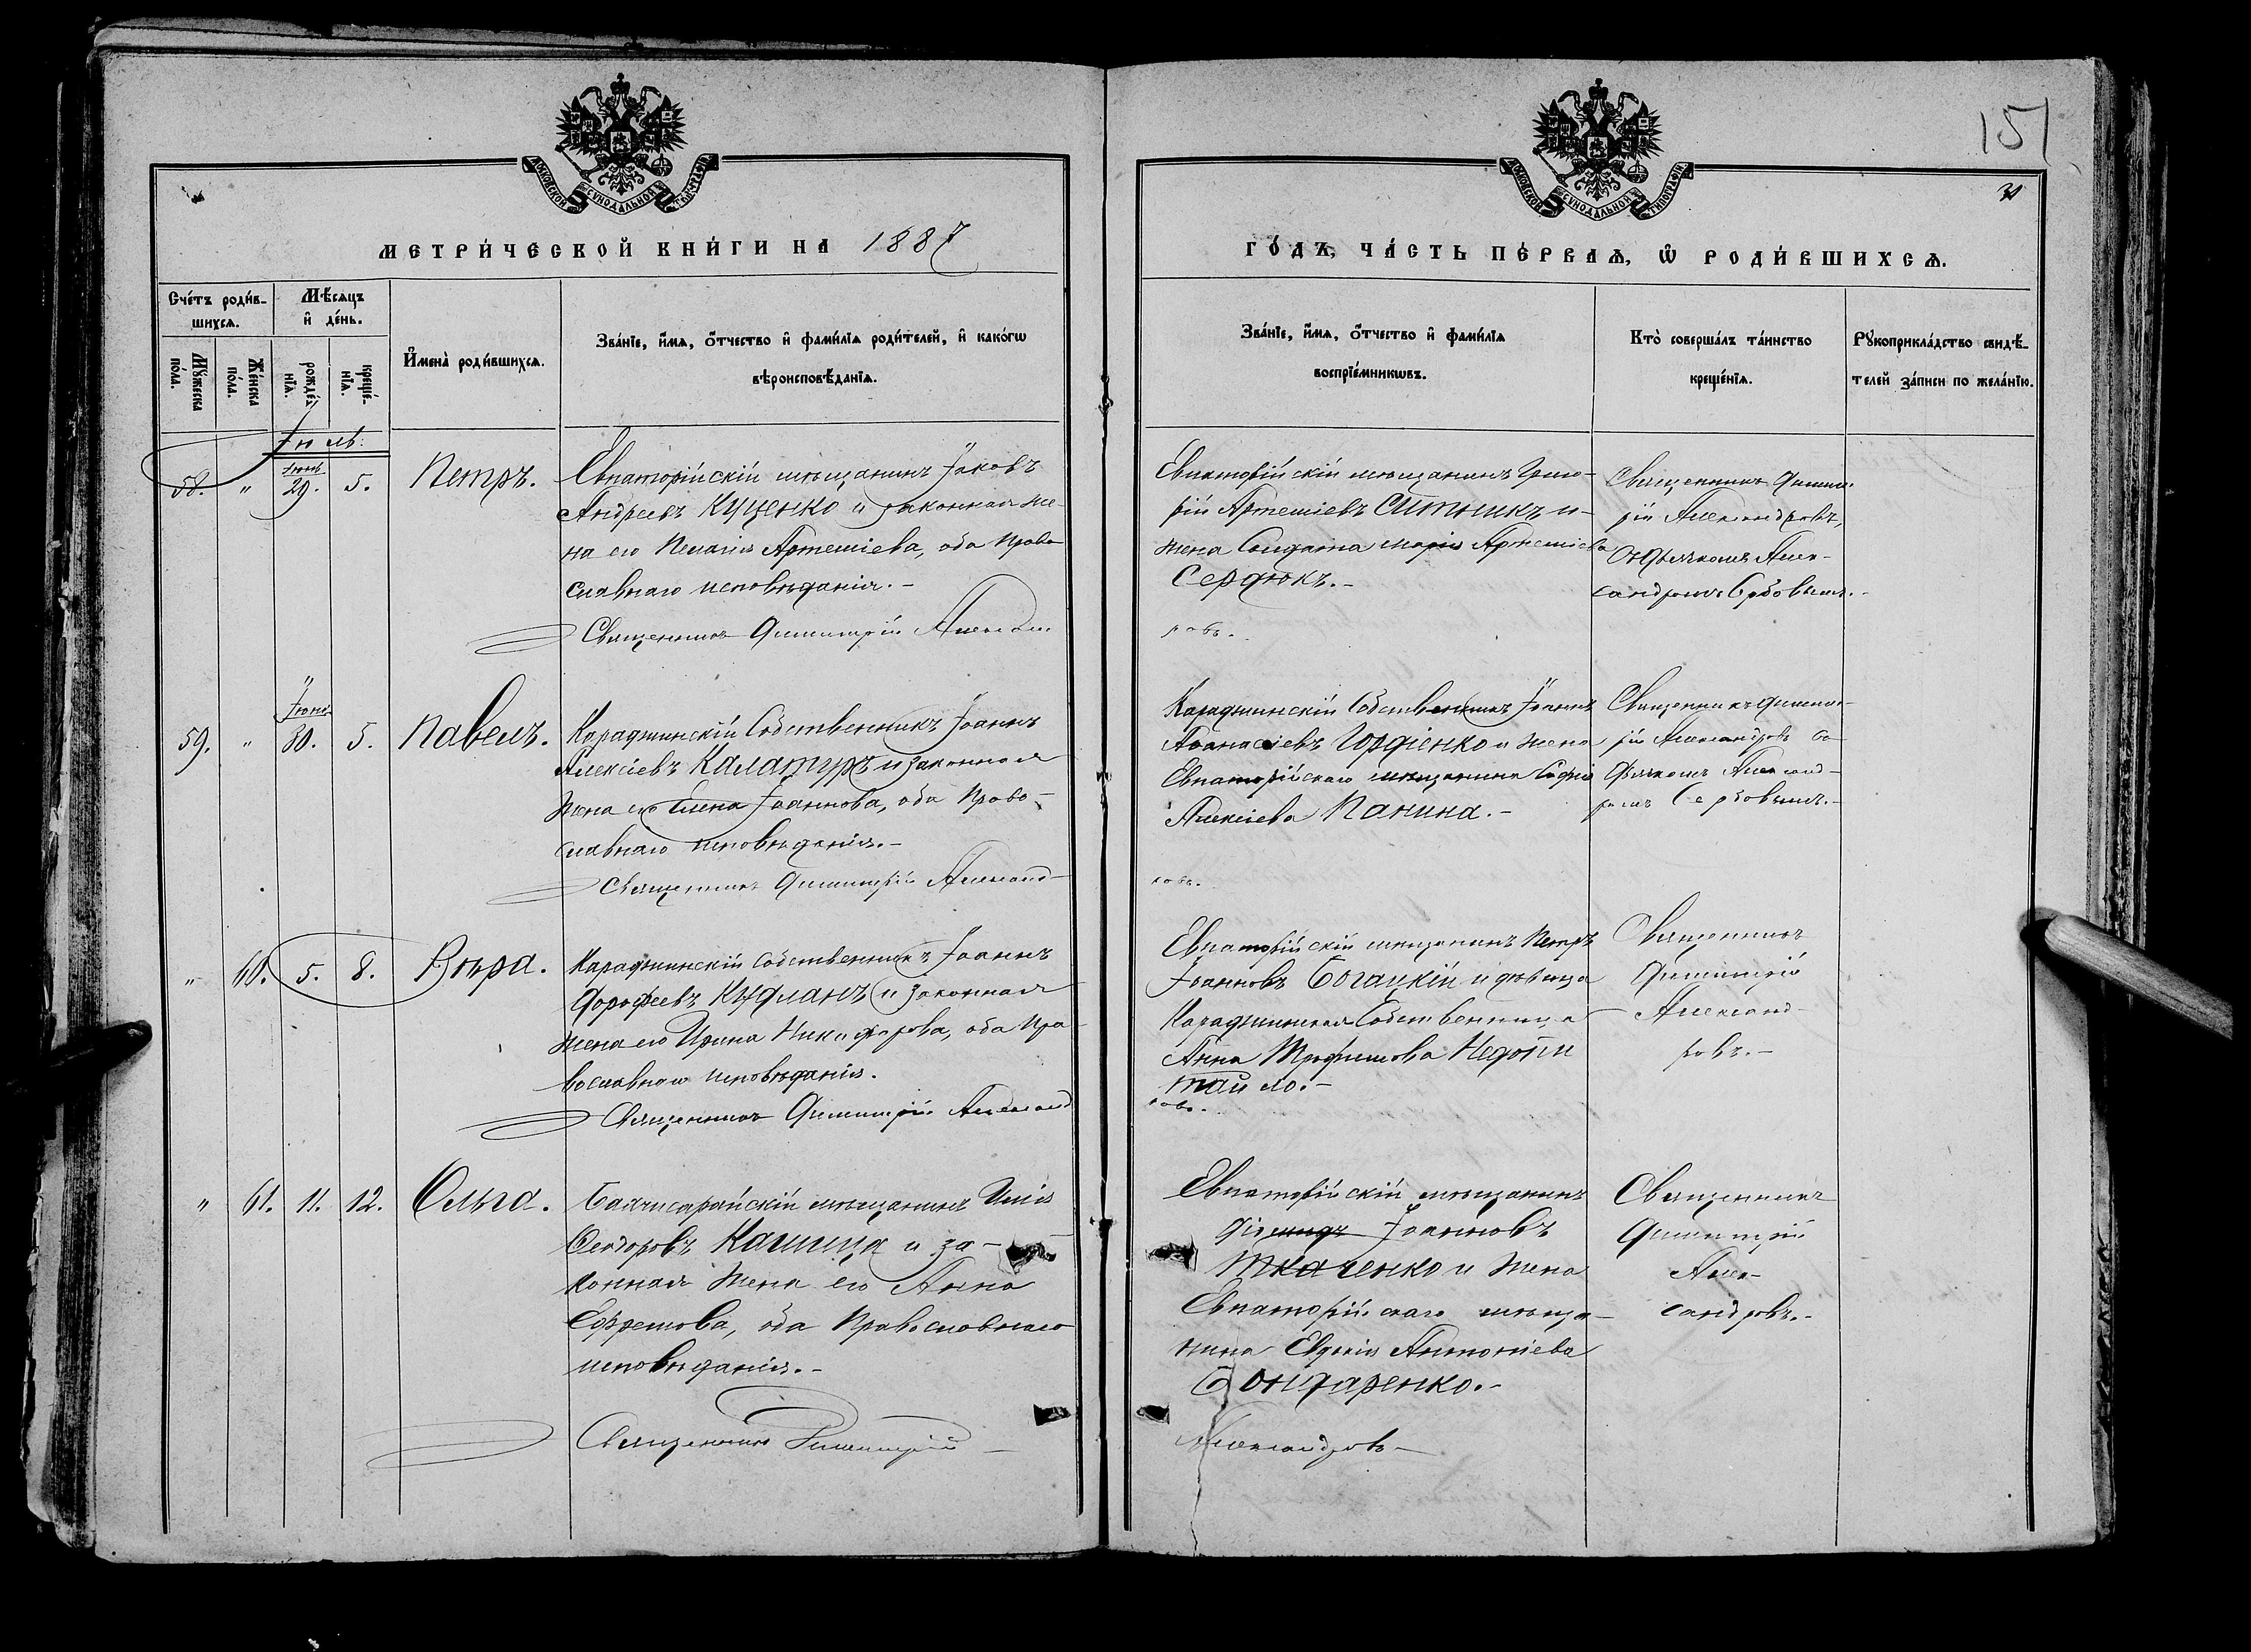 151
МОСКОВСКОЙ СѴНОДАЛЬНОЙ ТИПОГРАФІИ
МОСКОВСКОЙ СѴНОДАЛЬНОЙ ТИПОГРАФІИ
МЕТРИ́ЧЕСКОЙ КНИ́ГИ НА 1887
ГО́ДЪ, ЧА́СТЬ ПЕ́РВАѦ, Ѿ РОДИ́ВШИХСѦ.
Сче́тъ роди́в-
шихсѧ.
Мѣ́сѧцъ
и҆ де́нь.
Мꙋ́жеска
по́ла.
Же́нска
по́ла.
рожде́-
нїѧ.
креще́-
нїѧ.
И҆мена̀ роди́вшихсѧ.
Зва́нїе, и҆́мѧ, ѻ҆́тчество и҆ фами́лїѧ роди́телей, и҆ како́гѡ
вѣроисповѣ́данїѧ.
Зва́нїе, и҆́мѧ, ѻ҆́тчество и҆ фами́лїѧ
воспрїе́мникѡвъ.
Кто̀ соверша́лъ та́инство
креще́нїѧ.
Рꙋкоприкла́дство свидѣ́-
телей за́писи по жела́нїю.
Іюль.
58. " Іюнь 29. 5. Петръ.
Евпаторійскій мѣщанинъ Іаковъ
Андреевъ Куценко и законная же-
на его Пелагія Артеміева, оба Право
славнаго исповѣданія.-
Священникъ Димитрій Александ
Евпаторійскій мѣщанинъ Григо-
рій Артеміевъ Ситникъ и
жена Солдата Марія Артеміева
Сердюкъ.-
ровъ.
Священникъ Димит
рій Александровъ,
съ Дьячкомъ Алек-
сандромъ Сербовымъ.-
59. " Іюнь 30. 5. Павелъ.
Караджинскій Собственникъ Іоаннъ
Алексіевъ Каламуръ и законная
жена его Елена Іоаннова, оба Право-
славнаго исповѣданія.-
Священникъ Димитрій Александ-
Караджинскій Собственникъ Іоаннъ
Аѳанасіевъ Гордіенко и жена
Евпаторійскаго мѣщанина Софія
Алексіева Панина.-
ровъ.
Священникъ Димит-
рій Александровъ со
Дьячкомъ Александ-
ромъ Сербовымъ.-
" 60. 5. 8. Вѣра.
Караджинскій Собственникъ Іоаннъ
Дорофеевъ Кудланъ и законная
жена его Ирина Никифорова, оба Пра
вославнаго исповѣданія.
Священникъ Димитрій Александ
Евпаторійскій мѣщанинъ Петръ
Іоанновъ Богацкій и дѣвица
Караджинская Собственница
Анна Трофимова Недопи
тайло.-
ровъ.
Священникъ
Димитрій
Александ-
ровъ.-
" 61. 11. 12. Ольга.
Бахчисарайскій мѣщанинъ Илія
Феодоровъ Кашица и за-
конная жена его Анна
Ефремова, оба Православнаго
исповѣданія.-
Священникъ Димитрій
Евпаторійскій мѣщанинъ
Іоанновъ
Ткаченко и жена
Евпаторійскаго мѣща-
нина Евдокія Антоніева
Бондаренко.-
Александровъ-
Священникъ
Димитрій
Алек-
сандровъ.-